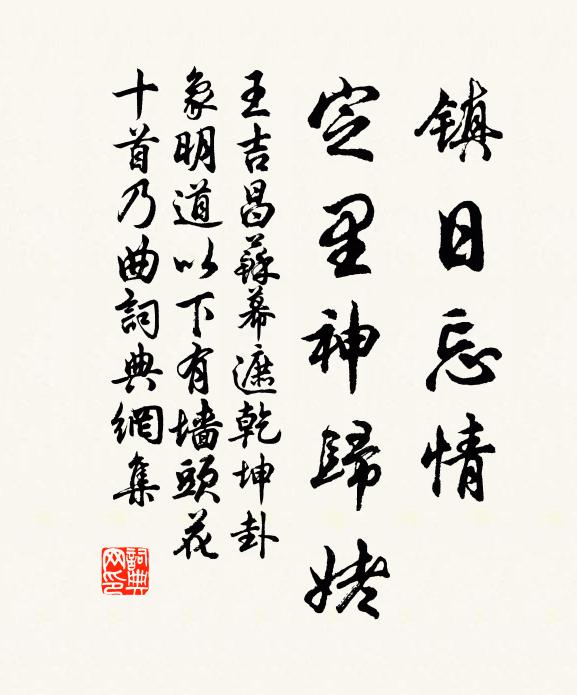 鎮日忘情
定里神歸姥
王吉昌蘇幕遮乾坤卦
象明道以下有墻頭花
十首乃曲詞典網集
詞典網印